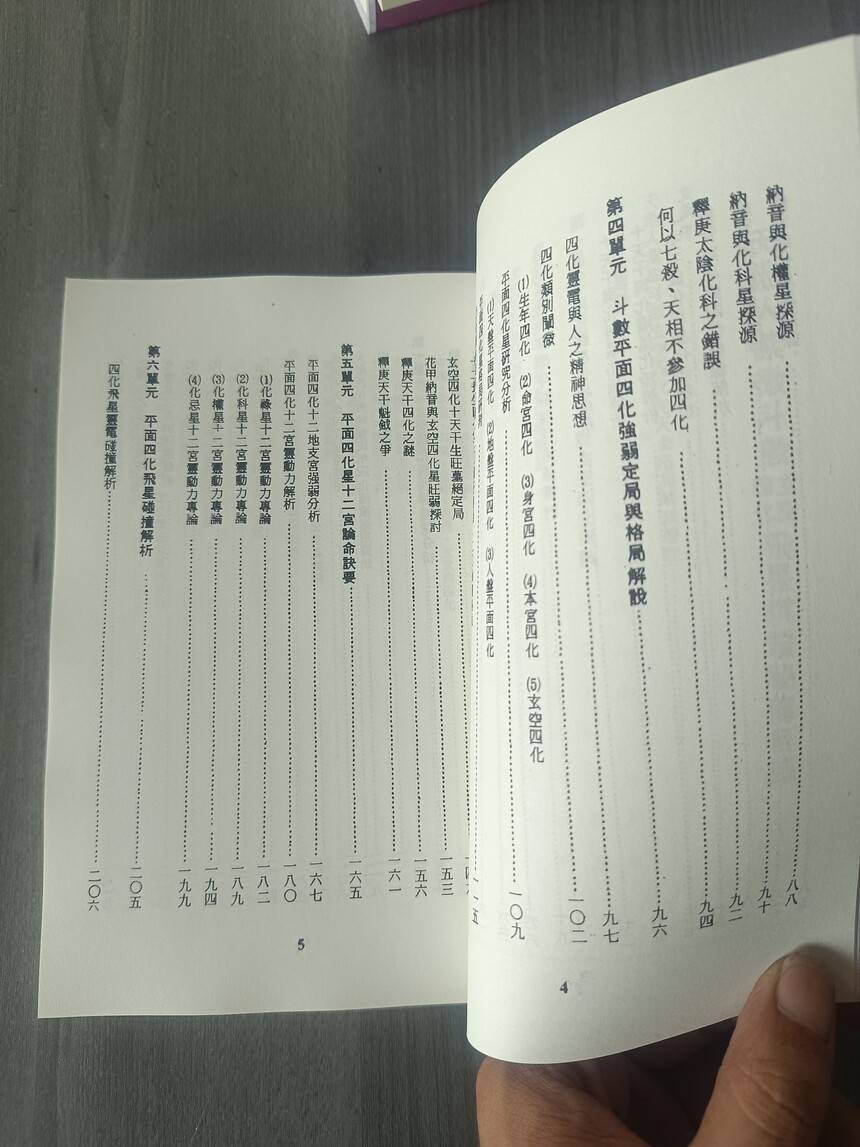 納音與化權星探源……八八
納音與化科星探源……九十
釋庚太陰化科之錯誤……九二
何以七殺、天相不參加四化……九四
第四單元　斗數平面四化強弱定局與格局解說……九七
四化靈電與人之精神思想
四化類別闡微……一〇二
(1)生年四化　(2)命宮四化　(3)身宮四化　(4)本宮四化　(5)玄空四化
平面四化星研究分析……一〇九
(1)天盤平面四化　(2)地盤平面四化　(3)人盤平面四化
4
玄空四化十天干生旺墓絕定局
花甲納音與玄空四化星旺弱探討……一五三
釋庚天干四化之謎……一五六
釋庚天干魁鉞之爭……一六一
第五單元　平面四化星十二宮論命訣要……一六五
平面四化十二地支宮強弱分析……一六七
平面四化十二宮靈動力解析……一八〇
(1)化祿星十二宮靈動力專論……一八二
(2)化科星十二宮靈動力專論……一八九
(3)化權星十二宮靈動力專論……一九四
(4)化忌星十二宮靈動力專論……一九九
第六單元　平面四化飛星碰撞解析……二〇五
四化飛星靈電碰撞解析……二〇六
5